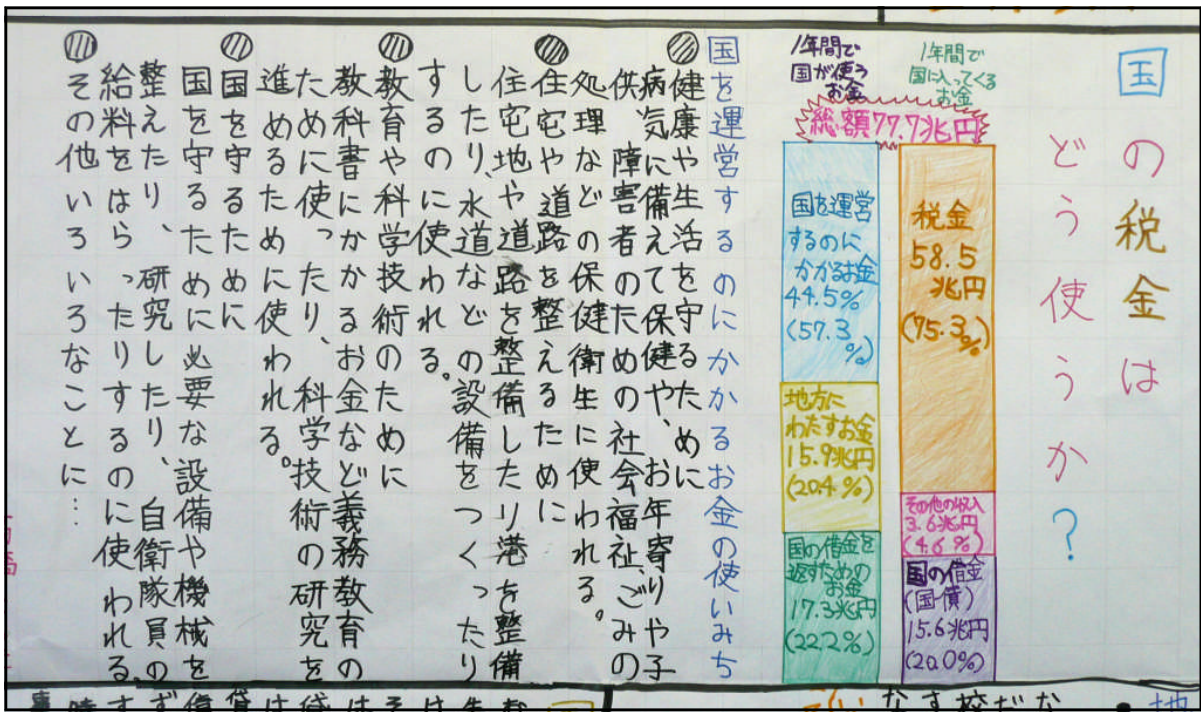 国の税金は
どう使うか?
1年間で
国に入ってくる
お金
1年間で
国が使う
お金
総額77.7兆円
税金
58.5
兆円
(75.3%)
その他の収入
3.6兆円
(4.6%)
国の借金
(国債)
15.6兆円
(20.0%)
国を運営
するのに
かかるお金
44.5%
(57.3
%)
地方に
わたすお金
15.9兆円
(20.4%)
国の借金を
返すための
お金
17.3兆円
(22.2%)
国を運営するのにかかるお金の使いみち
健康や生活を守るために
病気に備えて保健や、お年寄りや子
供、障害者のための社会福祉、ごみの
処理などの保健衛生に使われる。
住宅や道路を整えるために
住宅地や道路を整備したり港を整備
したり、水道などの設備をつくったり
するのに使われる。
教育や科学技術のために
教科書にかかるお金など義務教育の
ために使ったり、科学技術の研究を
進めるために使われる。
国を守るために
国を守るために必要な設備や機械を
整えたり、研究したり、自衛隊員の
給料をはらったりするのに使われる。
その他いろいろなことに…